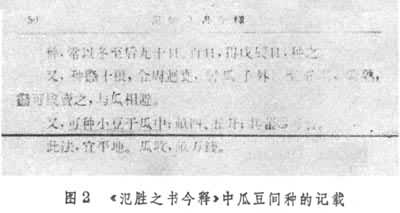 50
种,常以冬至后九十日、百日,得戊辰日,种之
又,种薤十根,令周迴甕,居瓜子外
可拔卖之,与瓜相避。
又,可种小豆于瓜中;亩四、五升;其藿可卖。
此法,宜平地。瓜收,亩万钱。
图2 《氾胜之书今释》中瓜豆间种的记载